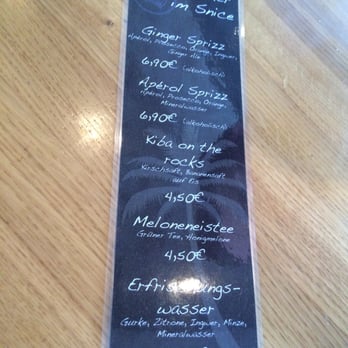 im Snice
Ginger Sprizz
Apérol, Prosecco, Orange, Ingwer,
Ginger Ale
6,90€ (alkoholisch)
Apérol Sprizz
Apérol, Prosecco, Orange,
Mineralwasser
6,90€ (alkoholisch)
Kiba on the
rocks
Kirschsaft, Bananensaft
auf Eis
4,50€
Meloneneistee
Grüner Tee, Honigmelone
4,50€
Erfrischungs-
wasser
Gurke, Zitrone, Ingwer, Minze,
Mineralwasser